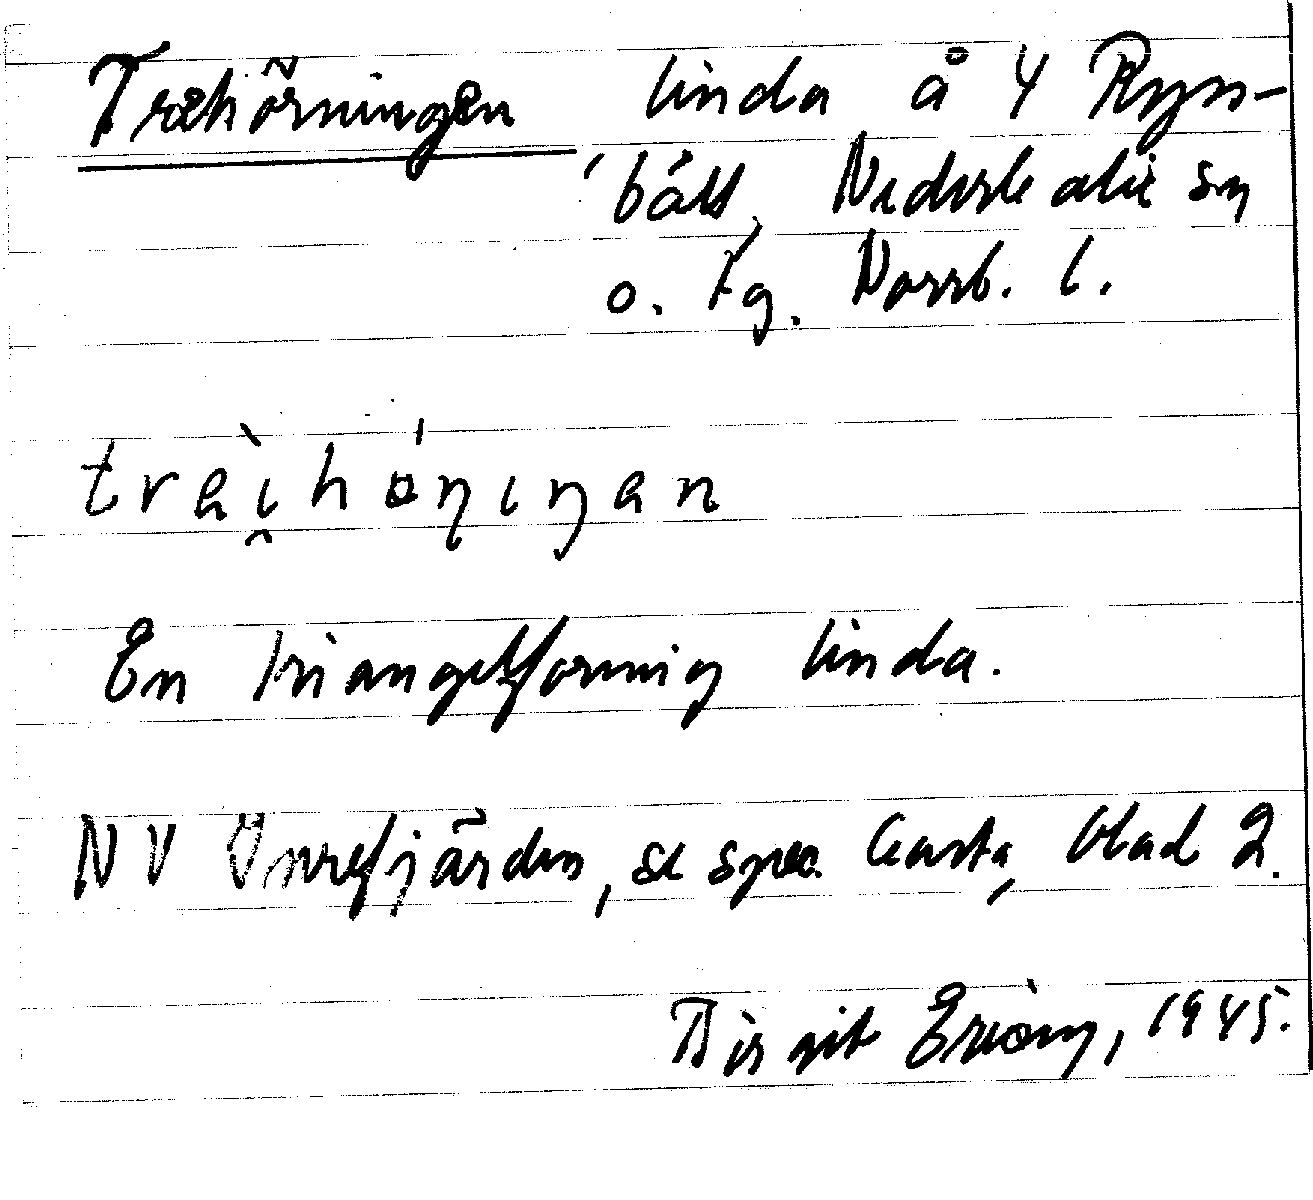 Trehörningen linda å 4 Ryss-
bält, Nederkalix sn
o. tg. Norrb. l.
trèi̯hóṇıŋan
En triangelformig linda.
NV Önrefjärden, se spec. karta, blad 2.
Birgit 1945.